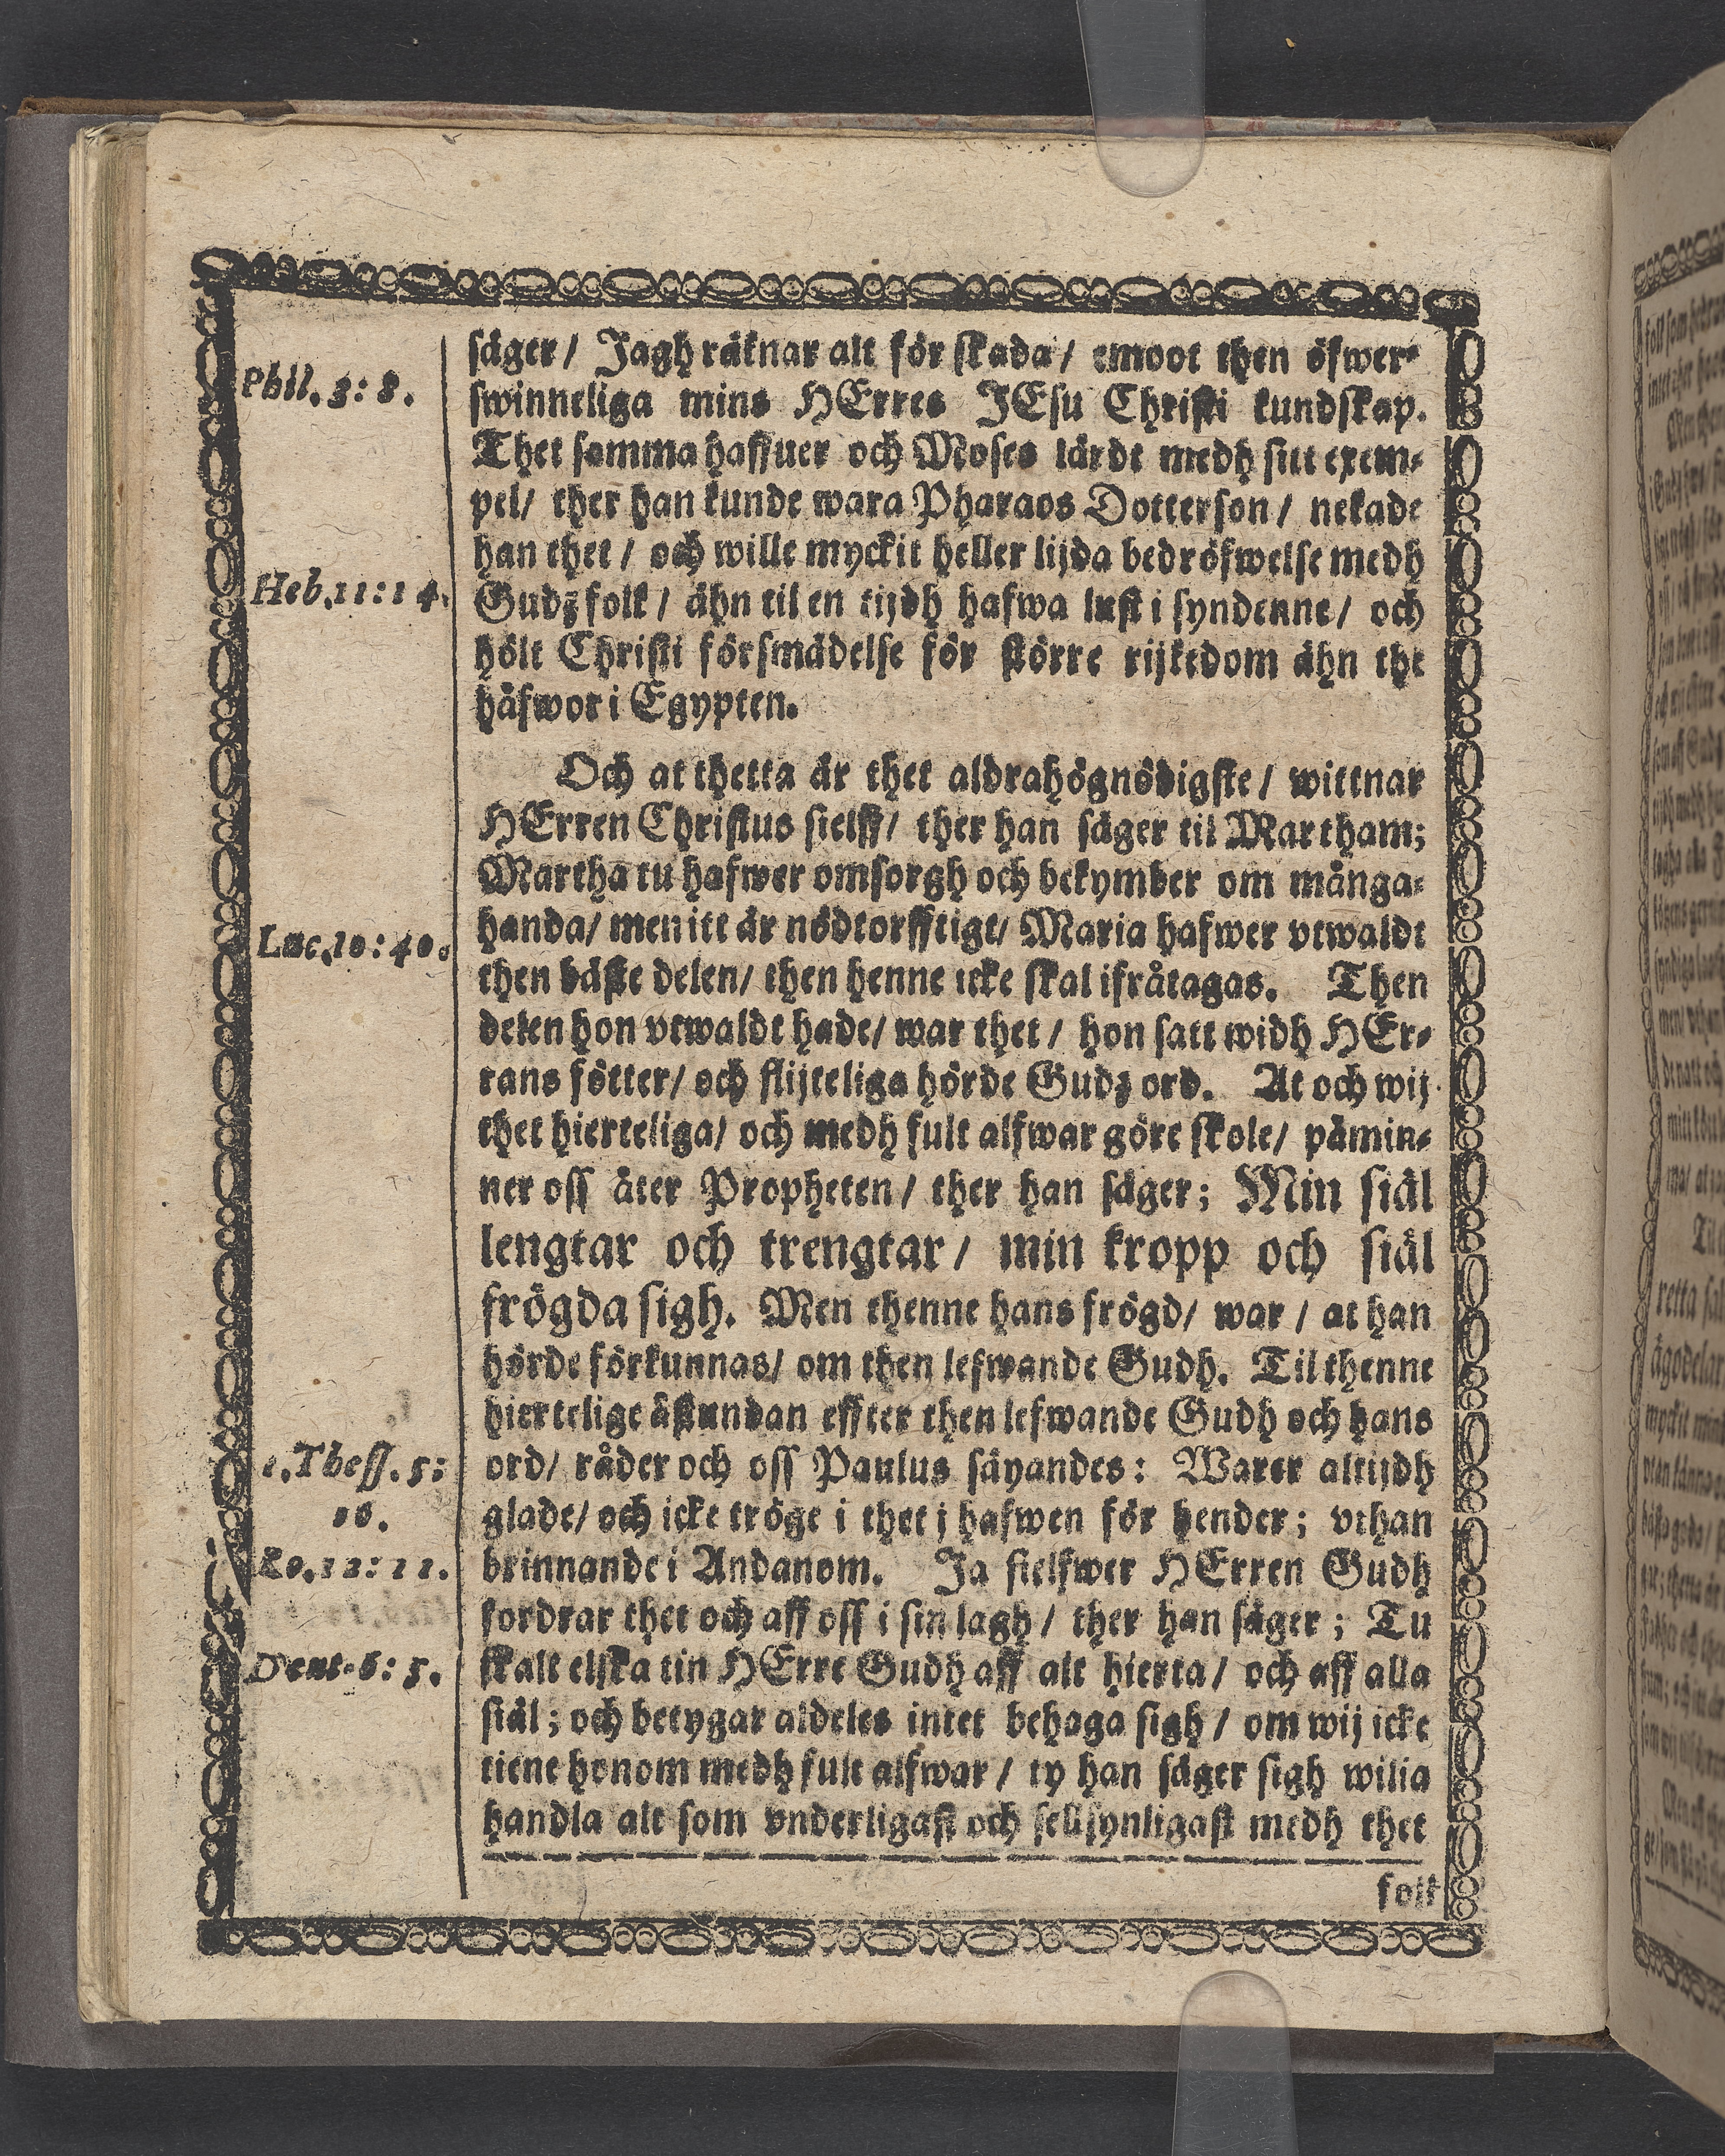 Phil. 3: 8.
Heb. 11: 14.
Luc. 10: 40.
1. Thess. 5:
16.
Ro. 12: 11.
Deut. 6: 5.
säger/ Jagh räknar alt för skada/ emoot then öfwer-
swinneliga mins HErres JEsu Christi kundskap.
Thet samma haffuer och Moses lärdt medh sitt exem-
pel/ ther han kunde wara Pharaos Dotterson/ nekade
han thet/ och wille myckit heller lijda bedröfwelse medh
Gudz folk/ ähn til en tijdh hafwa lust i syndenne/ och
hölt Christi försmädelse för större rijkedom ähn the
håfwor i Egypten.
Och at thetta är thet aldrahögnödigste/ wittnar
HErren Christus sielff/ ther han säger til Martham;
Martha tu hafwer omsorgh och bekymber om många-
handa/ men itt är nödtorfftigt/ Maria hafwer vtwaldt
then bäste delen/ then henne icke skal ifråtagas. Then
delen hon vtwaldt hade/ war thet/ hon satt widh HEr-
rans fötter/ och flijteliga hörde Gudz ord. At och wij
thet hierteliga/ och medh fult alfwar göre skole/ påmin-
ner oss åter Propheten/ ther han säger; Min siäl
lengtar och trengtar/ min kropp och siäl
frögda sigh. Men thenne hans frögd/ war/ at han
hörde förkunnas/ om then lefwande Gudh. Til thenne
hiertelige åstundan effter then lefwande Gudh och hans
ord/ råder och oss Paulus säyandes: Warer altijdh
glade/ och icke tröge i thet j hafwen för hender; vthan
brinnande i Andanom. Ja sielfwer HErren Gudh
fordrar thet och aff oss i sin lagh/ ther han säger; Tu
skalt elska tin HErre Gudh aff alt hierta/ och aff alla
siäl; och betygar aldeles intet behaga sigh/ om wij icke
tiene honom medh fult alfwar/ ty han säger sigh wilia
handla alt som vnderligast och sellsynligast medh thet
folk